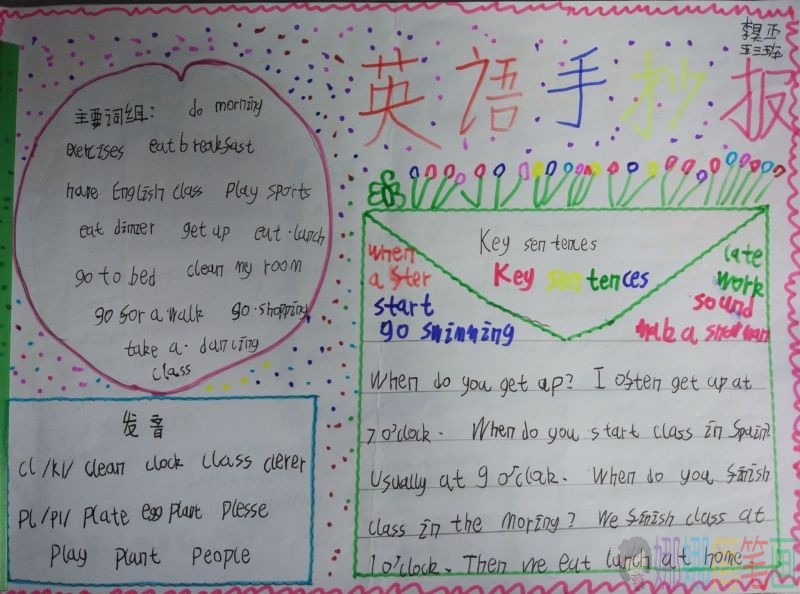 英语手抄报
五三班
主要词组: do morning
exercises eat breakfast
have English class play sports
eat dinner get up eat lunch
go to bed clean my room
go for a walk go shopping
take a dancing
class
发音
cl /kl/ clean clock class clerer
pl /pl/ plate eggplant plesse
play plant people
Key sentences
Key sentences
when
after
start
go swimming
late
work
sound
make a snowman
When do you get up? I often get up at
7 o'clock. When do you start class in Spain?
Usually at 9 o'clock. When do you finish
class in the moring? We finish class at
1 o'clock. Then we eat lunch at home
娜娜简笔画